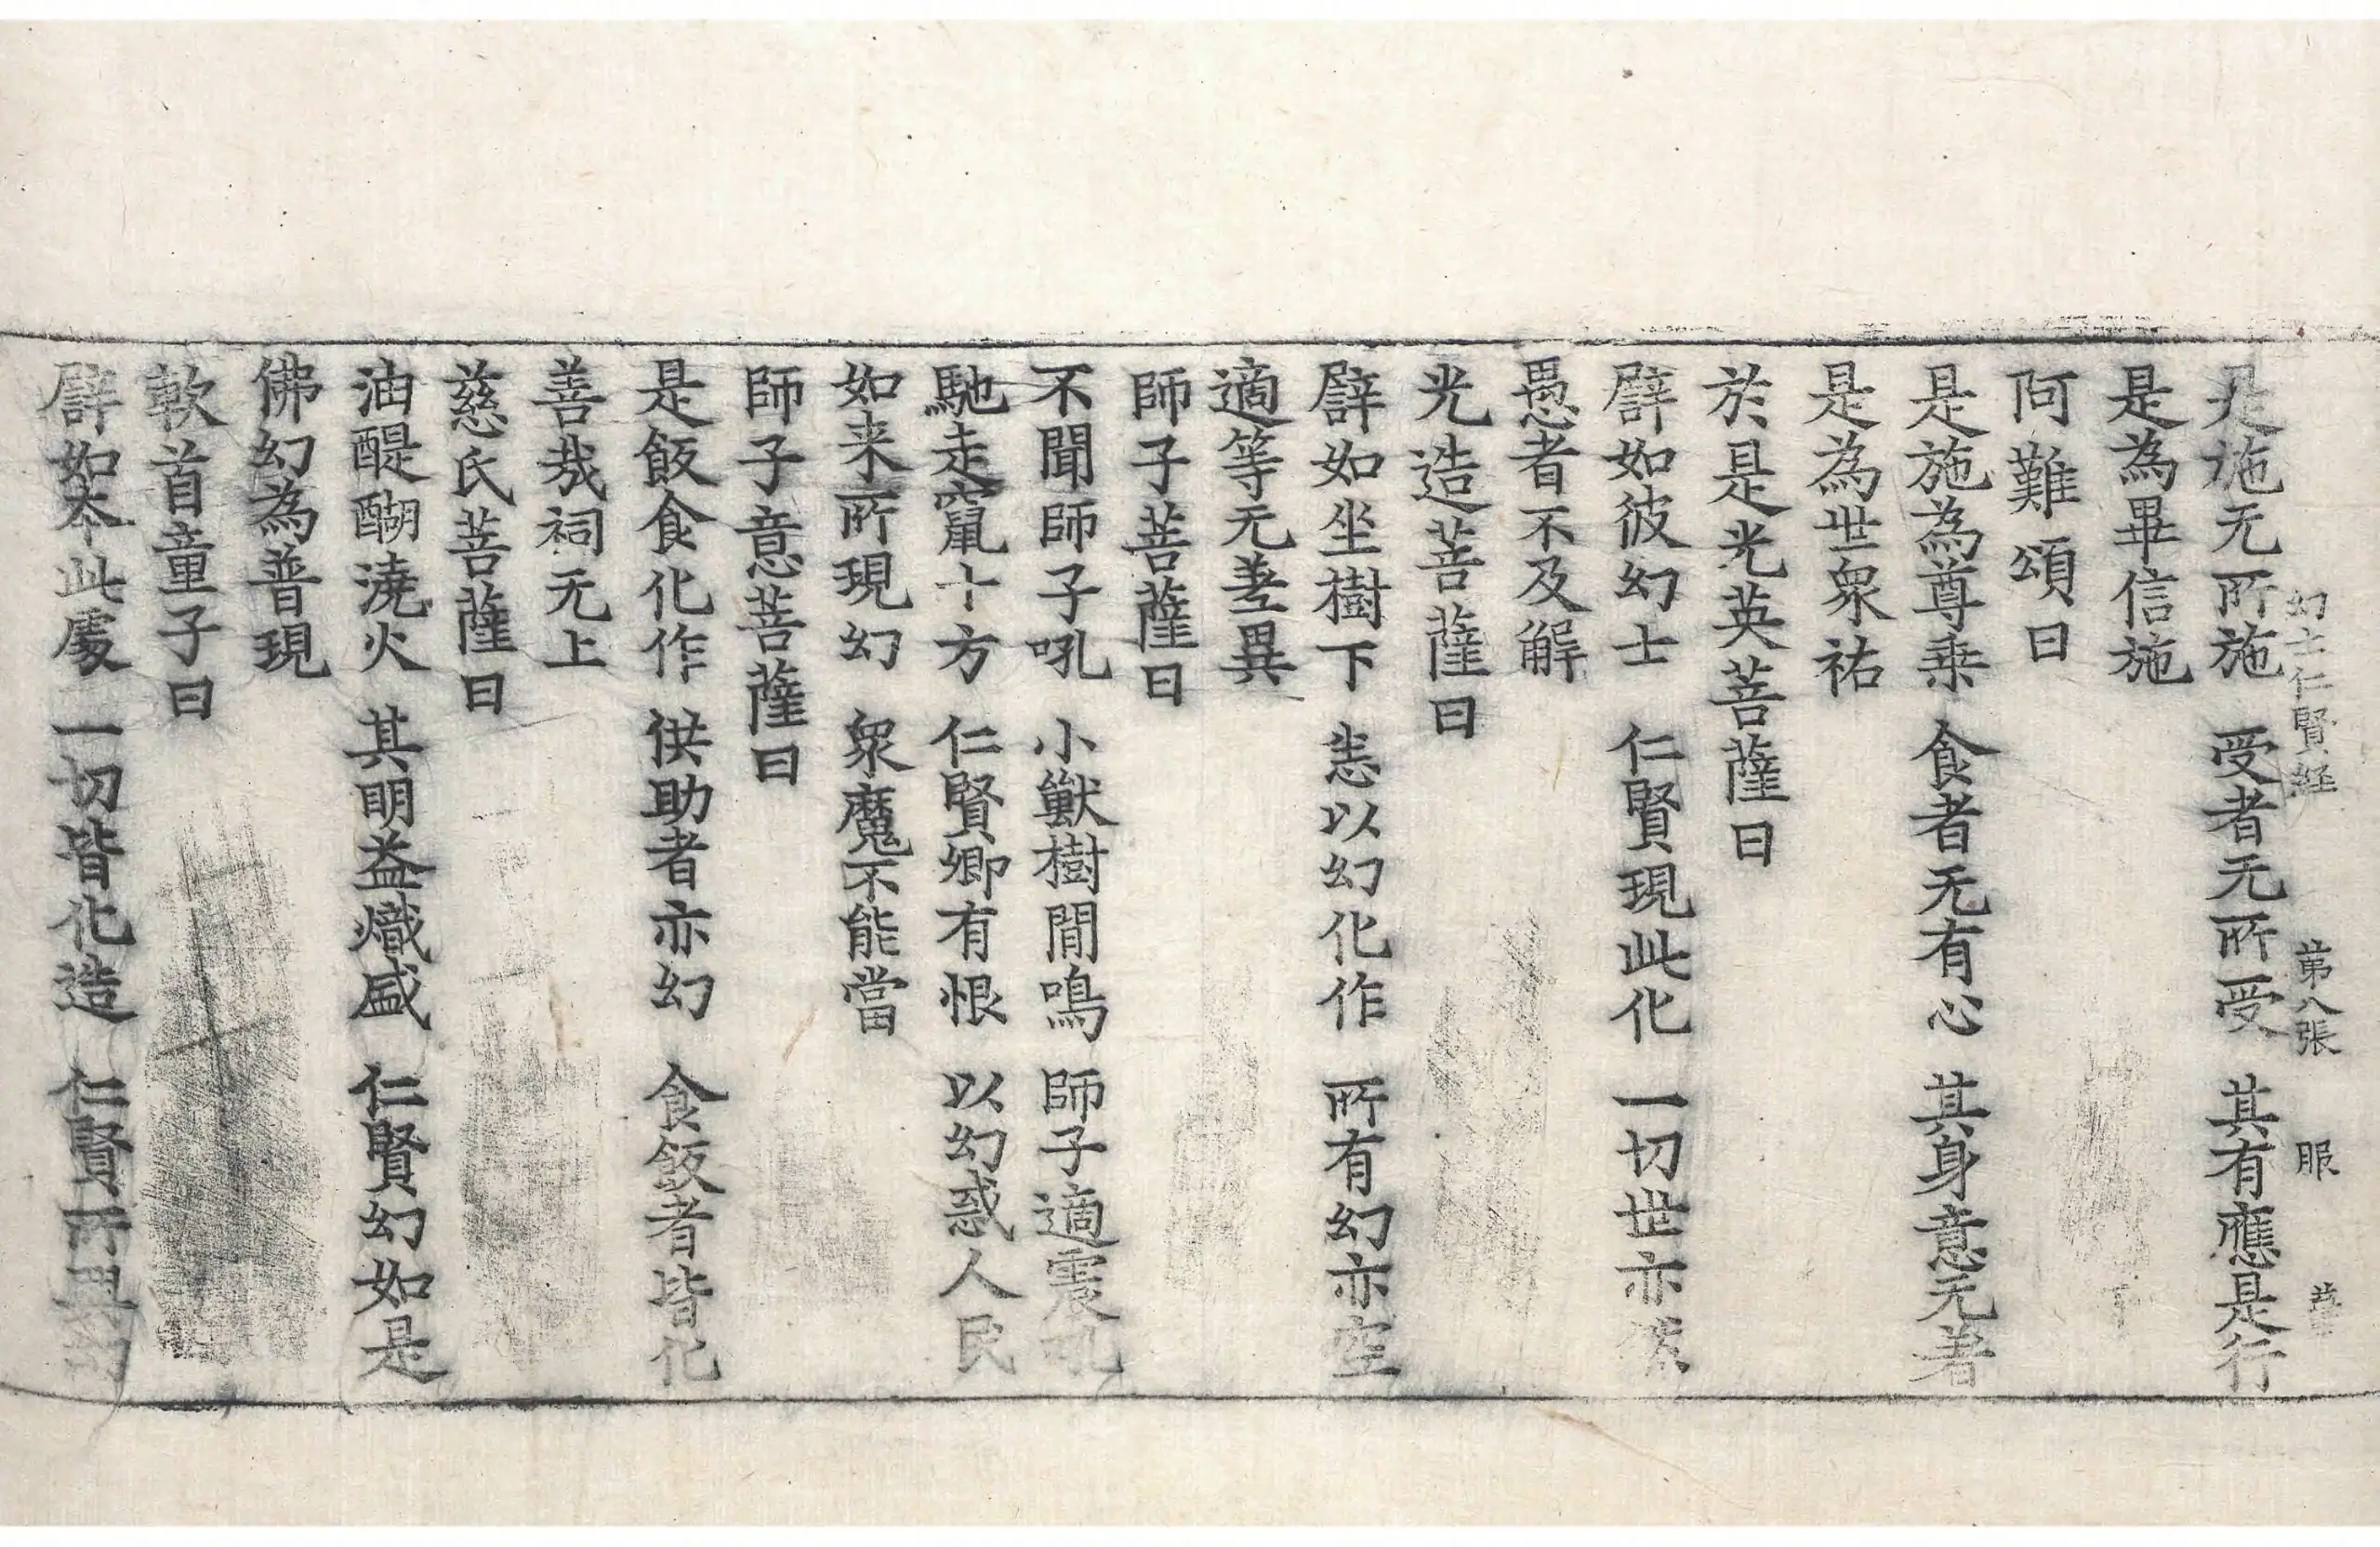 幻士仁賢経 第八張 服
是施无所施 受者无所受 其有應是行
是為畢信施
阿難頌曰
是施為尊乗 食者无有心 其身意无著
是為世衆祐
於是光英菩薩曰
譬如彼幻士 仁賢現此化 一切世亦
愚者不及解
光造菩薩曰
譬如坐樹下 恙以幻化作 所有幻亦空
適等无差異
師子菩薩曰
不聞師子吼 小獸樹間鳴 師子適震吼
馳走竄十方 仁賢卿有恨 以幻惑人民
如来所現幻 衆魔不能當
師子意菩薩曰
是飯食化作 供助者亦幻 食飯者皆化
善哉祠无上
慈氏菩薩曰
油醍醐澆火 其明益熾盛 仁賢幻如是
佛幻為普現
軟首童子曰
譬如夲此處 一切皆化造 仁賢所